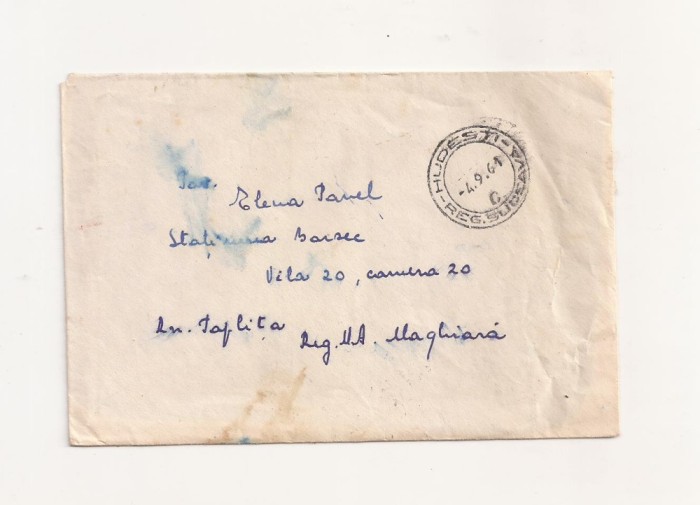 HUDESTI
-4.9.61
C
REG. SUCEAVA
Tov.
Elena Pavel
Stațiunea Borsec
Vila 20, camera 20
Rn. Toplița
Reg. M.A. Maghiară